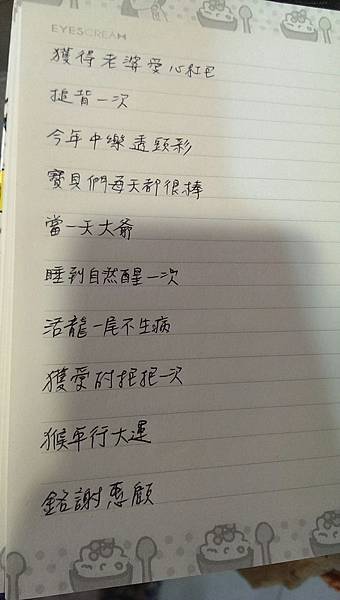 EYESCREAM
獲得老婆愛心紅包
搥背一次
今年中樂透頭彩
寶貝們每天都很棒
當一天大爺
睡到自然醒一次
活龍一尾不生病
獲愛的抱抱一次
猴年行大運
銘謝惠顧